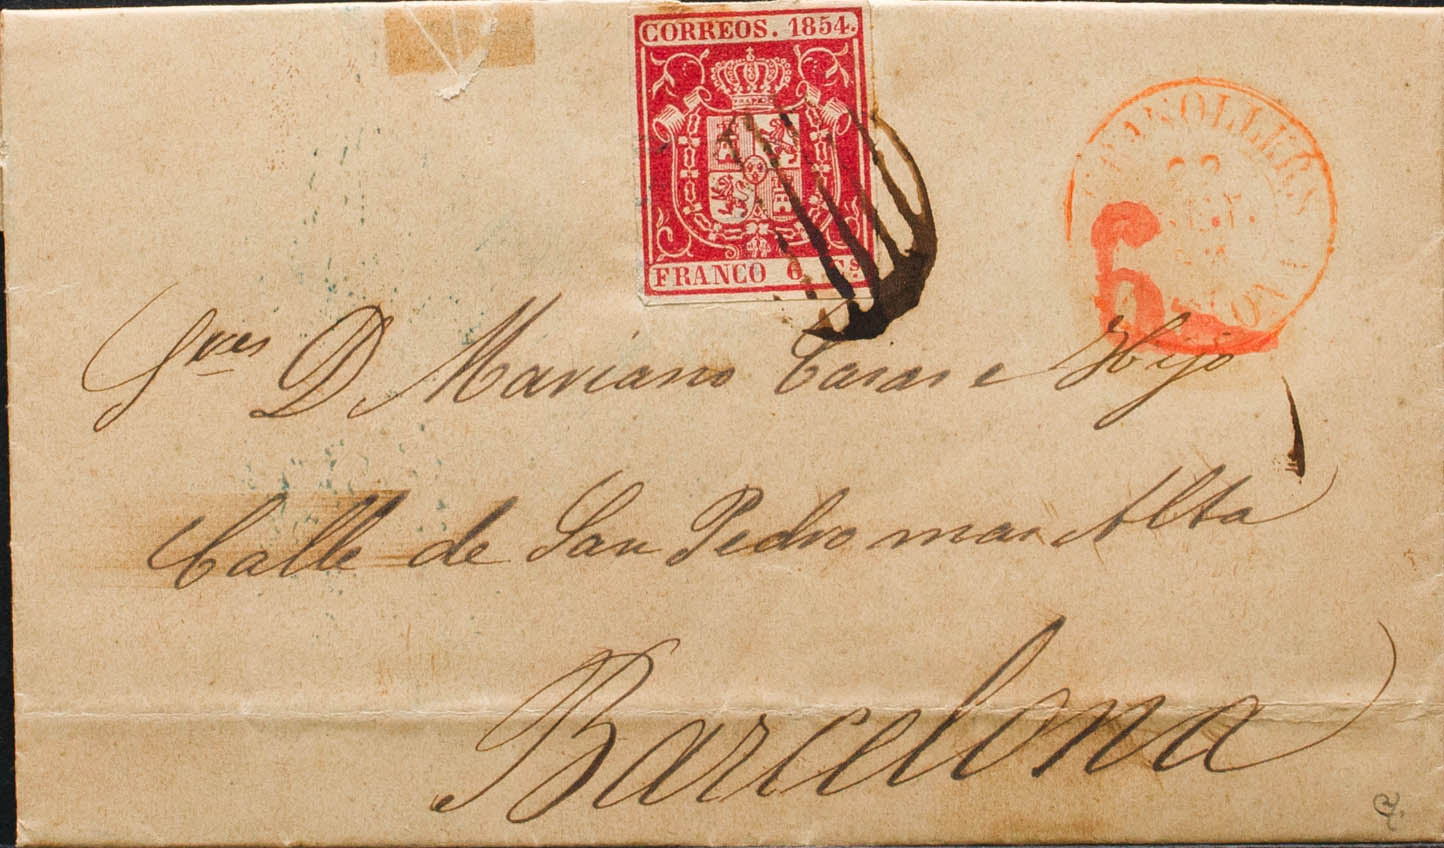 CORREOS. 1854.
FRANCO 6 Cs.
GRANOLLERS
6
Sres D Mariano Casas e Hijo
Calle de San Pedro mas Alta
Barcelona